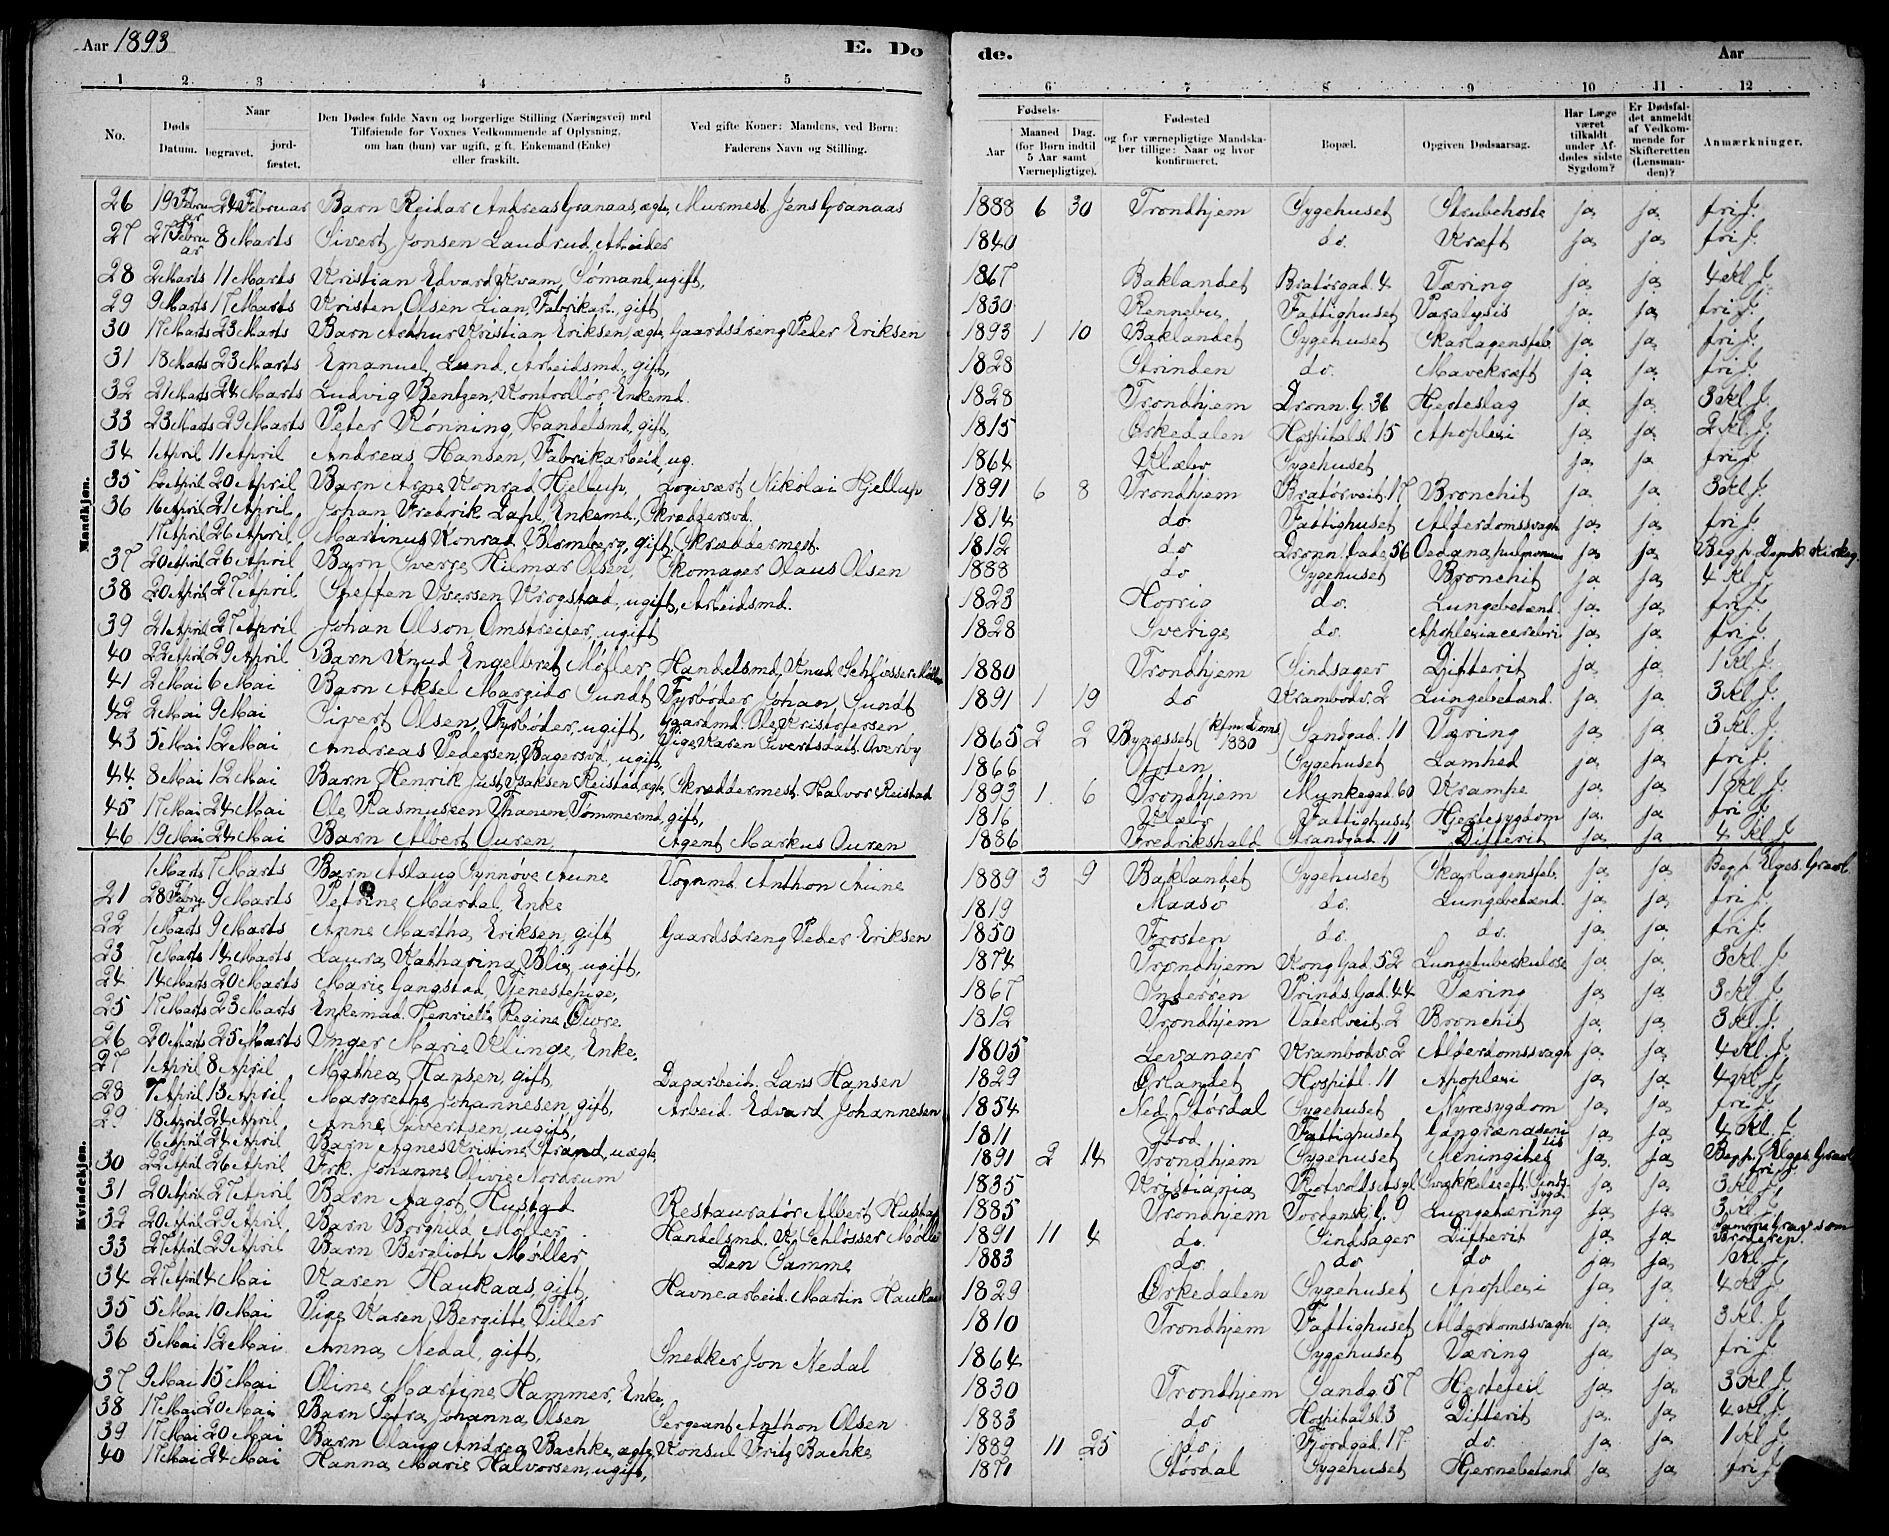 Aar 1893 E. Døde. Aar
1 2 3 4 5 6 7 8 9 10 11 12
No. Døds Datum. Naar begravet. jordfæstet. Den Dødes fulde Navn og borgerlige Stilling (Næringsvei) med Tilføiende for Voxnes Vedkommende af Oplysning, om han (hun) var ugift, gift, Enkemand (Enke) eller fraskilt. Ved gifte Koner: Mandens, ved Børn: Faderens Navn og Stilling. Fødsels- Aar Maaned Dag. (for Børn indtil 5 Aar samt Værnepligtige). Fødested og for værnepligtige Mandskaber tillige: Naar og hvor konfirmeret. Bopæl. Opgiven Dødsaarsag. Har Læge været tilkaldt under Afdødes sidste Sygdom? Er Dødsfaldet anmeldt af Vedkommende for Skifteretten (Lensmanden)? Anmærkninger.
Mandkjøn.
26 19 Februar 24 Februar Barn Reidar Andreas Granaas, ægte, Murmest. Jens Granaas 1888 6 30 Trondhjem Sygehuset Strubehoste ja ja fri J.
27 27 Februar 8 Marts Sivert Jonsen Laudrud, Arbeider 1840 do. Kræft ja ja fri J.
28 2 Marts 11 Marts Kristian Edvard Kvam, Sømand, ugift, 1867 Baklandet Bratørgad. 4 Tæring ja ja 4 Kl. J.
29 9 Marts 17 Marts Kristen Olsen Lian, Fabrikarb., gift 1830 Rennebu Fattighuset Paralysis ja ja fri J.
30 17 Marts 23 Marts Barn Arthur Kristian Eriksen, ægte, Gaardsdreng Peder Eriksen 1893 1 10 Baklandet Sygehuset Skarlagensfeb. ja ja fri J.
31 18 Marts 23 Marts Emanuel Lund, Arbeidsmd., gift, 1828 Strinden do. Mavekræft ja ja fri J.
32 21 Marts 24 Marts Ludvig Bentzen, Kontrollør, Enkemd. 1828 Trondhjem Dronn. G. 36 Hjerteslag ja ja 3 Kl. J.
33 23 Marts 29 Marts Peter Rønning, Handelsmd., gift, 1815 Ørkedalen Hospitalsl. 15 Apoplexi ja ja 2 Kl. J.
34 1 April 11 April Andreas Hansen, Fabrikarbeid., ug. 1864 Klæbo Sygehuset ja ja fri J.
35 12 April 20 April Barn Arne Konrad Hjellup, Logivært Nikolai Hjellup 1891 6 8 Trondhjem Bratørveit. 17 Bronchit ja ja 3 Kl. J.
36 16 April 21 April, Johan Fredrik Lahl, Enkemd., Skrædersvd. 1814 do Fattighuset Alderdomssvagh ja ja fri J.
17 April 26 April, Martinus Konrad Blomberg, gift, Skræddermest. 1812 do Dronn. Gade 56 Oedana pulmonum ja ja Begr. p. Domk. Kirkeg.
37 20 April 26 April Barn Sverre Hilmar Olsen, Skomager Olaus Olsen 1888 do Sygehuset Bronchit ja ja 4 Kl. J.
38 20 April 27 April Steffen Iversen Krogstad, ugift, Arbeidsmd. 1823 Horrig do. Lungebetænd. ja ja fri J.
39 21 April 27 April Johan Olson, Omstreifer, ugift 1828 Sverige do. Apoplexia cerebri ja ja fri J.
40 22 April 29 April Barn Knud Engelbret Møller, Handelsmd. Knud Schlösser Møller 1880 Trondhjem Sindsager Difterit ja ja 1 Kl. J.
41 2 Mai 6 Mai Barn Aksel Margido Sundt Fyrbøder Johan Sundt 1891 1 19 do Krambodv. 2 Lungebetænd. ja ja 3 Kl. J.
42 2 Mai 9 Mai Sivert Olsen, Fyrbøder, ugift, Gaardmd. Ole Kristofersen 1865 2 2 Bynæsset (kfm. Doms. 1880) Sandgad. 11 Tæring ja ja 3 Kl. J.
43 5 Mai 12 Mai Andreas Pedersen, Bagersvd., ugift, Pige Karen Sivertsdatt. Overby 1866 Otten Sygehuset Lamhed ja ja fri J.
44 8 Mai 12 Mai Barn Henrik Just Isaksen Reistad, ægte, Skræddermest. Halvor Reistad 1893 1 6 Trondhjem Munkegad. 60 Krampe ja ja 1 Kl. J.
45 17 Mai 24 Mai Ole Rasmussen Thanem Tømmermd., gift, 1816 Klæbo Fattighuset Hjertesygdom ja ja fri J.
46 19 Mai 24 Mai Barn Albert Ouren, Agent Markus Ouren 1886 Fredrikshald Strandgad. 11 Difterit ja ja 4 Kl. J.
Kvindekjøn.
1 Marts 7 Marts Barn Aslaug Synnøve Aune Vognmd. Anthon Aune 1889 3 9 Baklandet Sygehuset Skarlagensfeb. ja ja Begr. p. Elges. Gravl.
21 28 Februar 9 Marts Petrine Mardal, Enke 1819 Maasø do. Lungebetænd. ja ja fri J.
22 1 Marts 9 Marts Anne Martha Eriksen, gift Gaardsdreng Peder Eriksen 1850 Frosten do. do. ja ja fri J.
23 7 Marts 14 Marts Laura Katharina Blix, ugift, 1874 Trondhjem Kong. Gad. 52 Lungetuberkulose ja ja 3 Kl. J
24 14 Marts 20 Marts Marie Langstad, Tjenestepige, 1867 Inderøen Prinds. Gad. 44 Tæring ja ja 3 Kl. J
25 17 Marts 23 Marts Enkemad. Henriette Regine Øwre. 1812 Trondhjem Vaterlveit. 2 Bronchit ja ja 3 Kl. J.
26 20 Marts 25 Marts Inger Marie Klinge, Enke, 1805 Levanger Krambodv. 2 Alderdomssvagh ja ja 4 Kl. J.
27 1 April 8 April Mathea Hansen, gift, Dagarbeid. Lars Hansen 1829 Ørlandet Hospitl. 11 Apoplexi ja ja 4 Kl. J.
28 7 April 13 April Margrethe Johannesen, gift, Arbeid. Edvard Johannesen 1854 Ned. Størdal Sygehuset Nyresygdom ja ja fri J.
29 18 April 24 April Anne Sivertsen, ugift, 1811 Stod Fattighuset Gangræna senilis ja ja 4 Kl. J.
16 April 24 April Barn Agnes Kristine Strand, uægte, 1891 2 14 Trondhjem Sygehuset Meningites ja ja Begr. p. Elges. Gravl
30 22 April 26 April Frk. Johanne Olivie Nordrum 1835 Kristiania Rotvoldsasyl Svækkelse eft. Sindssygd. ja ja fri J.
31 20 April 27 April Barn Aagot Hustad Restauratør Albert Hustad 1885 Trondhjem Tordenskj. G. 9 Lungetæring ja ja 3 Kl. J
32 20 April 29 April, Barn Borghild Møller Handelsmd. K. Schlösser Møller 1891 11 4 do. Sindsager Difterit ja ja Samme Grav som Broderen.
33 27 April 29 April Barn Bergljoth Møller Den Samme 1883 do do do ja ja 1 Kl. J
34 27 April 4 Mai Karen Haukaas, gift, Havnearbeid. Martin Haukaas 1829 Ørkedalen Sygehuset Apoplexi ja ja 4 Kl. J
35 5 Mai 10 Mai Pige Karen Bergitte Tiller 1810 Trondhjem Fattighuset Alderdomssvagh. ja ja 3 Kl. J
36 5 Mai 12 Mai Anna Nedal, gift, Snedker Jon Nedal 1864 Sygehuset Tæring ja ja fri J
37 9 Mai 15 Mai Oline Martine Hammer, Enke, 1830 Trondhjem Sandg. 57 Hjertefeil ja ja 3 Kl. J
38 17 Mai 20 Mai Barn Petra Johanna Olsen Sergeant Anthon Olsen 1883 do Hospitalsl. 3 Difterit ja ja 4 Kl. J
39 17 Mai 20 Mai Barn Olaug Andrea Bachke, ægte, Konsul Fritz Bachke 1889 11 25 do, Fjordgad. 17 do. ja ja 1 Kl J
40 17 Mai 24 Mai Hanna Marie Halvorsen, ugift, 1871 Størdal Sygehuset Hjernebetænd ja ja fri J